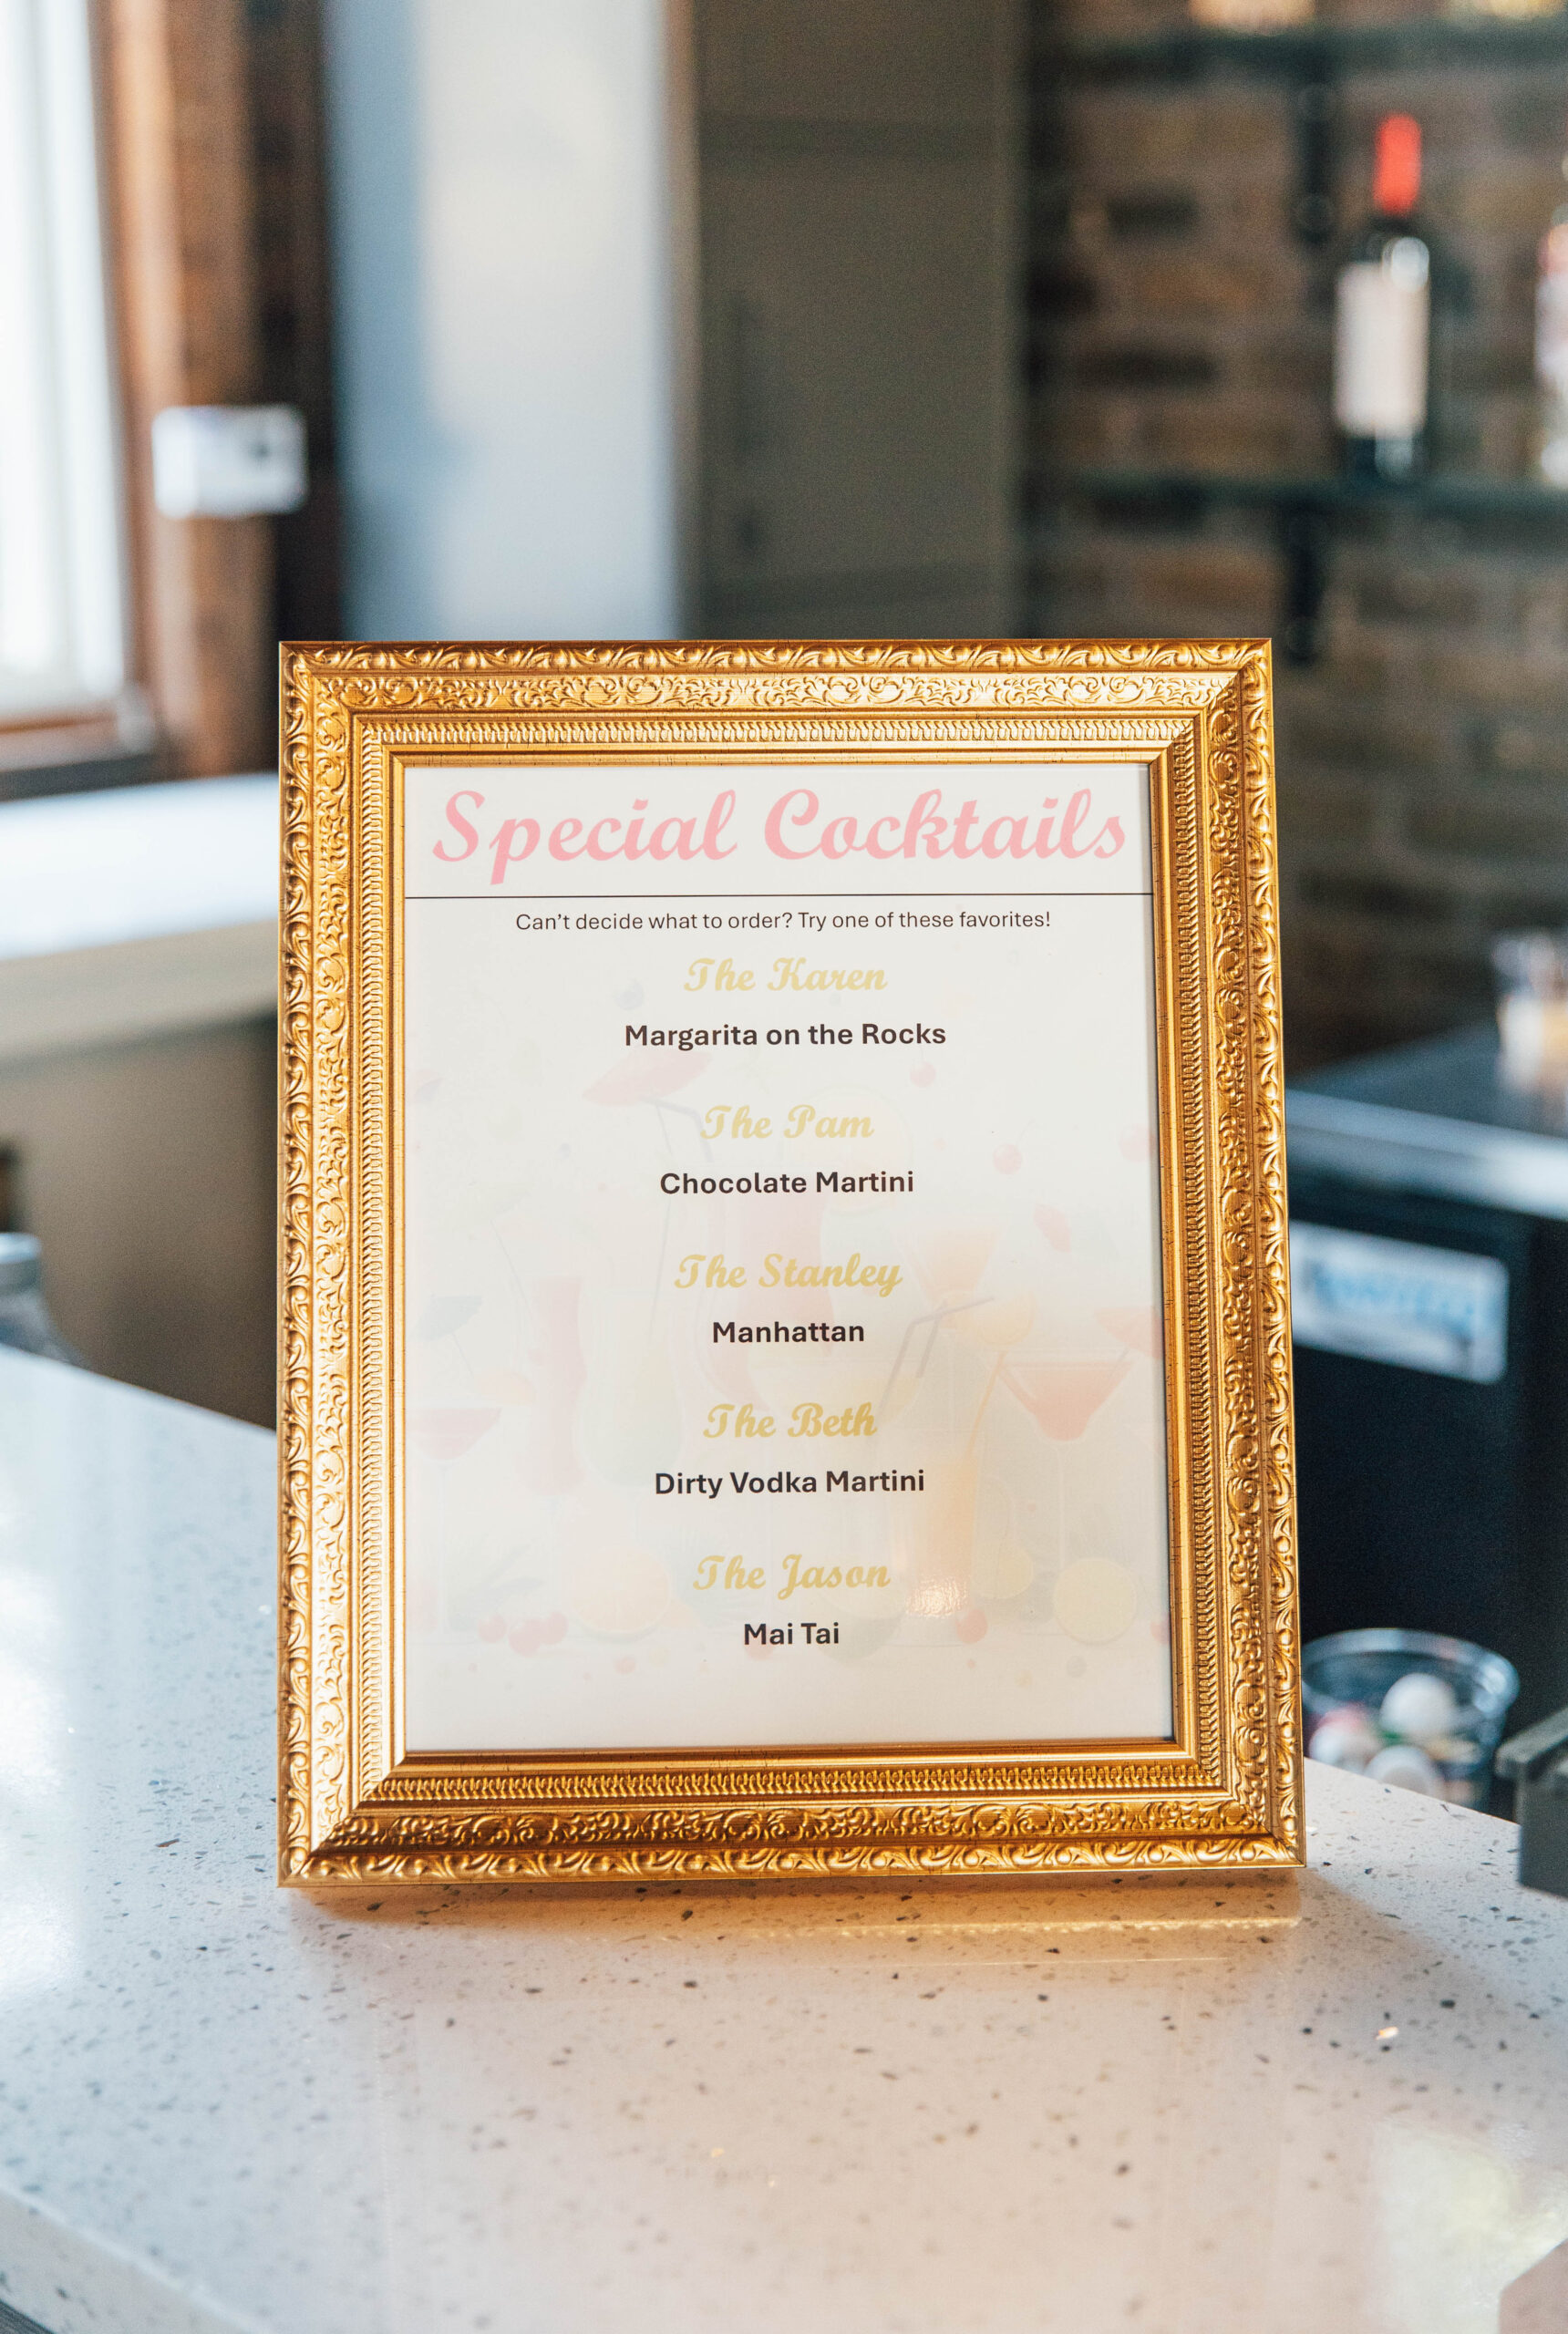 Special Cocktails
Can't decide what to order? Try one of these favorites!
The Karen
Margarita on the Rocks
The Pam
Chocolate Martini
The Stanley
Manhattan
The Beth
Dirty Vodka Martini
The Jason
Mai Tai